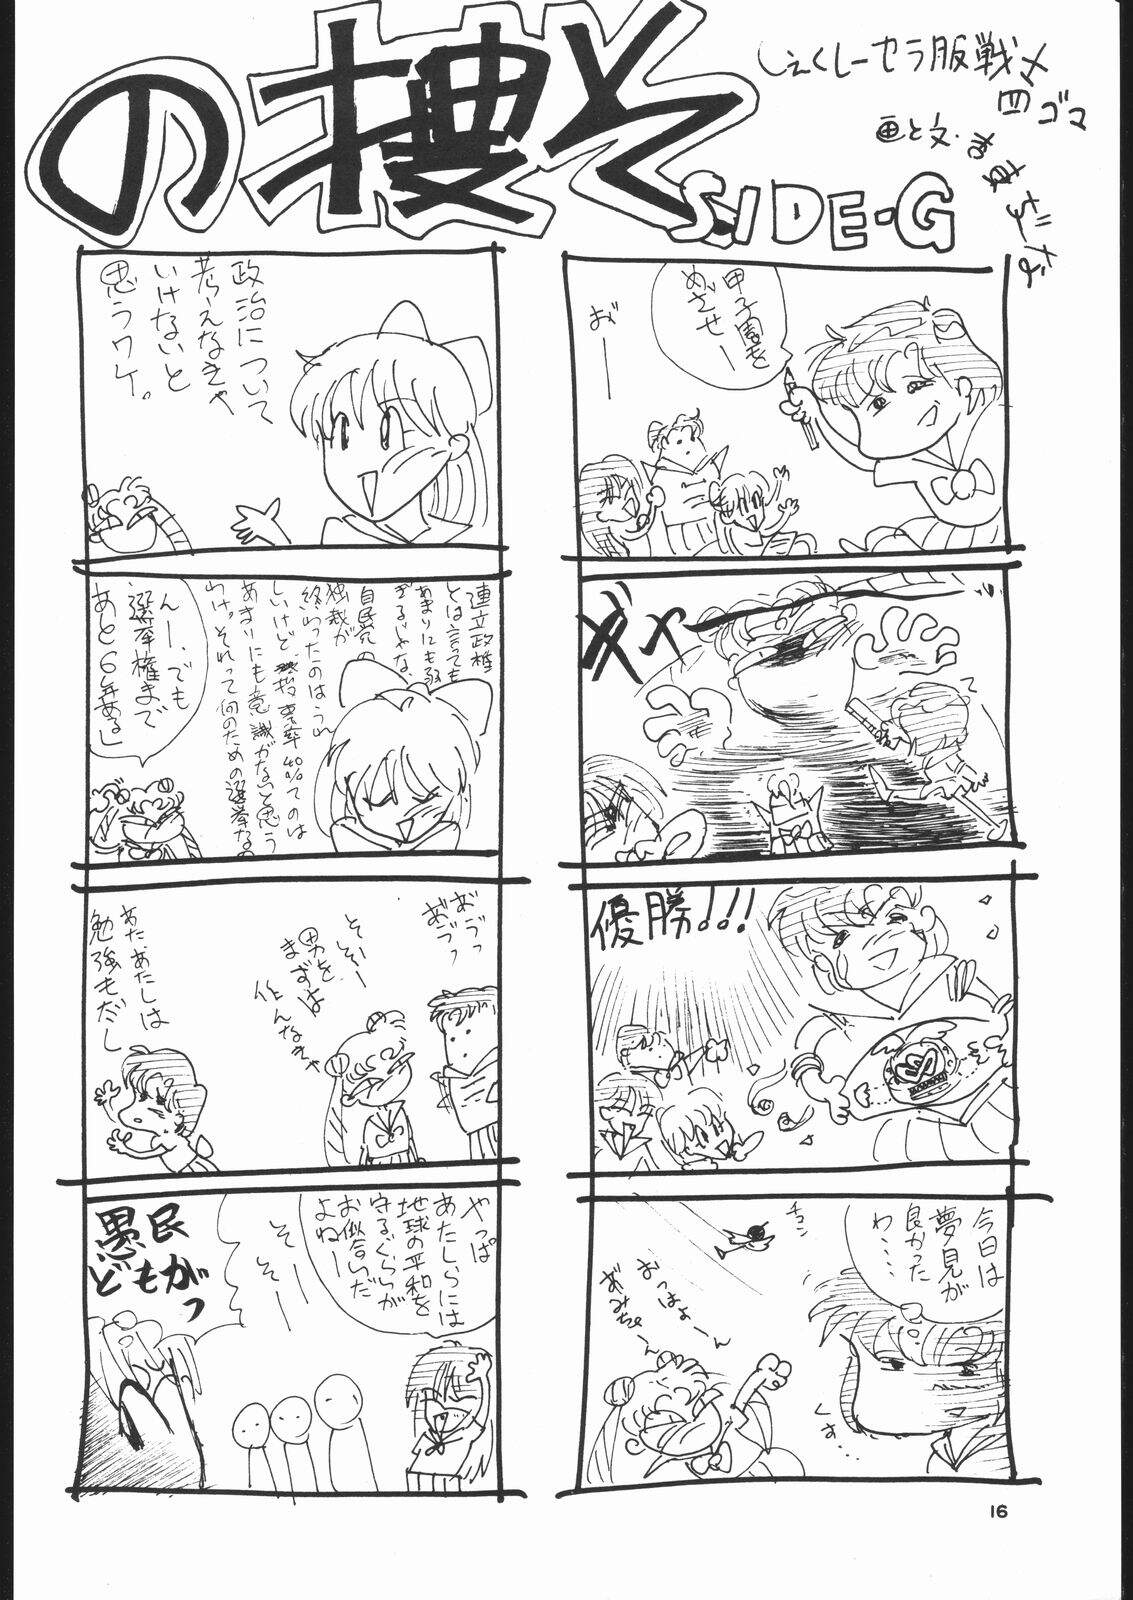 の捜そ
SIDE-G
しぇくしーセラ服戦士
四コマ
画と文・
甲子園を
めざせー
おー
ギャー
優勝!!!
今日は
夢見が
良かった
わ・・・・
チュン
おっはよーん
あみちゃーん
くす・・・
政治について
考えなきゃ
いけないと
思うワケ。
連立政権
とは言っても
あまりにも弱
すぎるじゃな。
自民党の
独裁が
終わったのはうれ
しいけど、投票率40%てのは
あまりにも意識がないと思う
わけ。それって何のための選挙なの
んー、でも
選挙権まで
あと6年ある」
おうっ
おうっ
そゃそー
まずは
男を
作んなきゃ
あた、あたしは
勉強もだし
やっぱ
あたしらには
地球の平和を
守るぐらいが
お似合いだ
よねー
そーそー
愚民
どもがっ
16